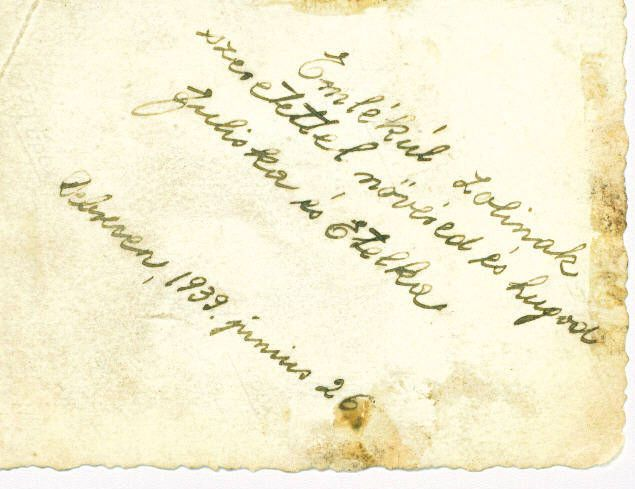 Emlékül Zolinak
szeretettel növéred és hugod
Juliska és Etelka
Debrecen, 1939. junius 26